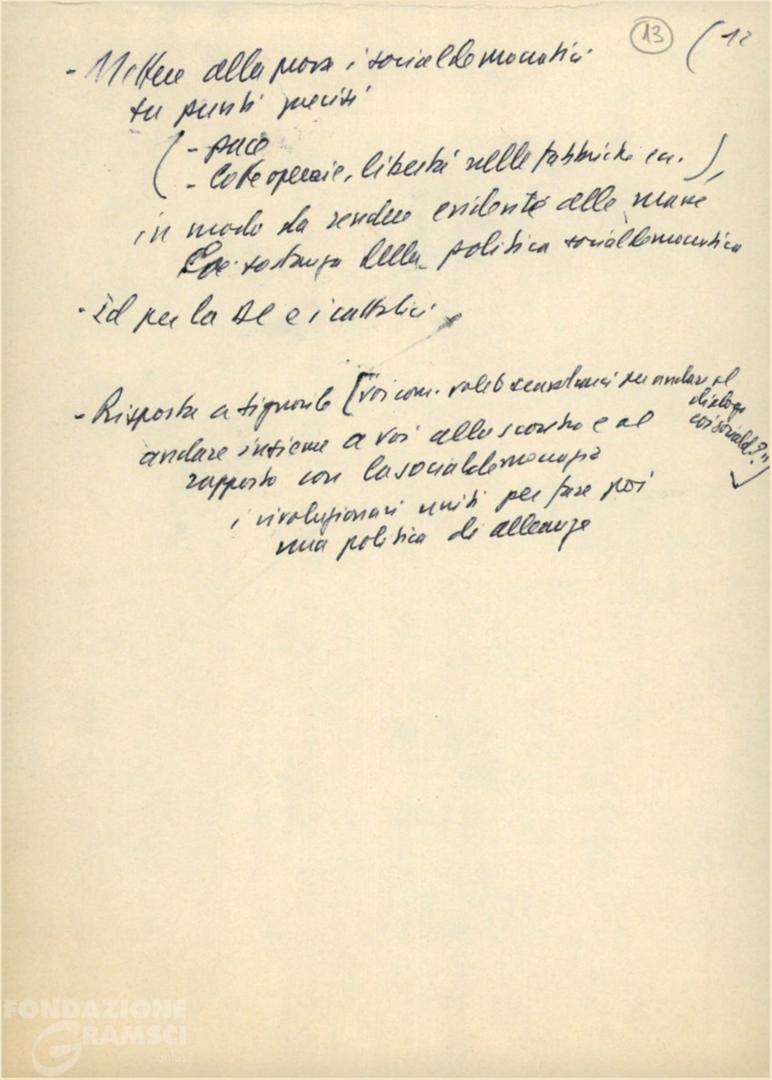 13 (12
- Mettere alla prova i socialdemocratici
su punti precisi
( - pace
- lotte operaie, libertà nelle fabbriche ecc. ),
in modo da rendere evidente alle masse
la sostanza della politica socialdemocratica
- Id per la DC e i cattolici
- Risposta a Signorile [voi com. volete scavalcarci per andare al
dialogo
coi sociald?"
andare insieme a voi allo scontro e al
rapporto con la socialdemocrazia
i rivoluzionari uniti per fare poi
una politica di alleanze
FONDAZIONE
GRAMSCI